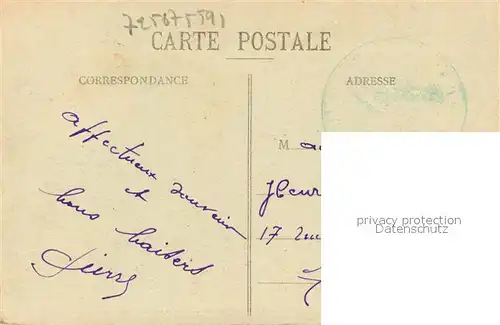 725675591
CARTE POSTALE
CORRESPONDANCE
ADRESSE
affectueux souvenir
et
bons baisers
Pierre
M
17
privacy protection
Datenschutz